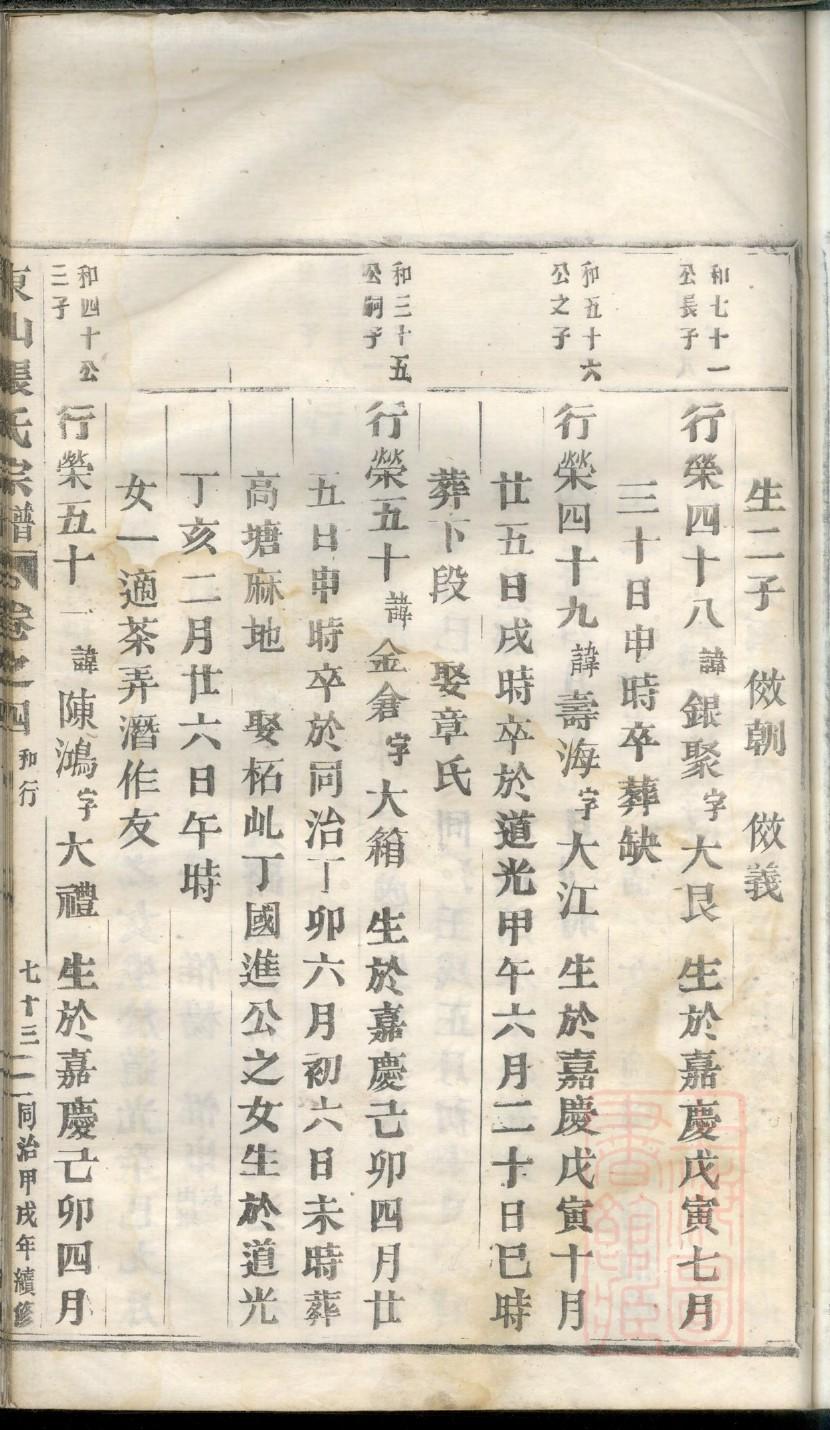 生二子 倣朝 倣義
和七十一
公長子
行榮四十八諱銀聚字大良 生於嘉慶戊寅七月
三十日申時卒葬缺
和五十六
公之子
行榮四十九諱壽海字大江 生於嘉慶戊寅十月
廿五日戌時卒於道光甲午六月二十日巳時
葬下段 娶章氏
和三十五
公嗣子
行榮五十諱金倉字大箱 生於嘉慶己卯四月廿
五日申時卒於同治丁卯六月初六日未時葬
高塘麻地 娶柘乢丁國進公之女生於道光
丁亥二月廿六日午時
女一適茶弄潛作友
和四十公
三子
行榮五十一諱陳鴻字大禮 生於嘉慶己卯四月
東山張氏宗譜 卷之四 和行 七十三 同治甲戌年續修